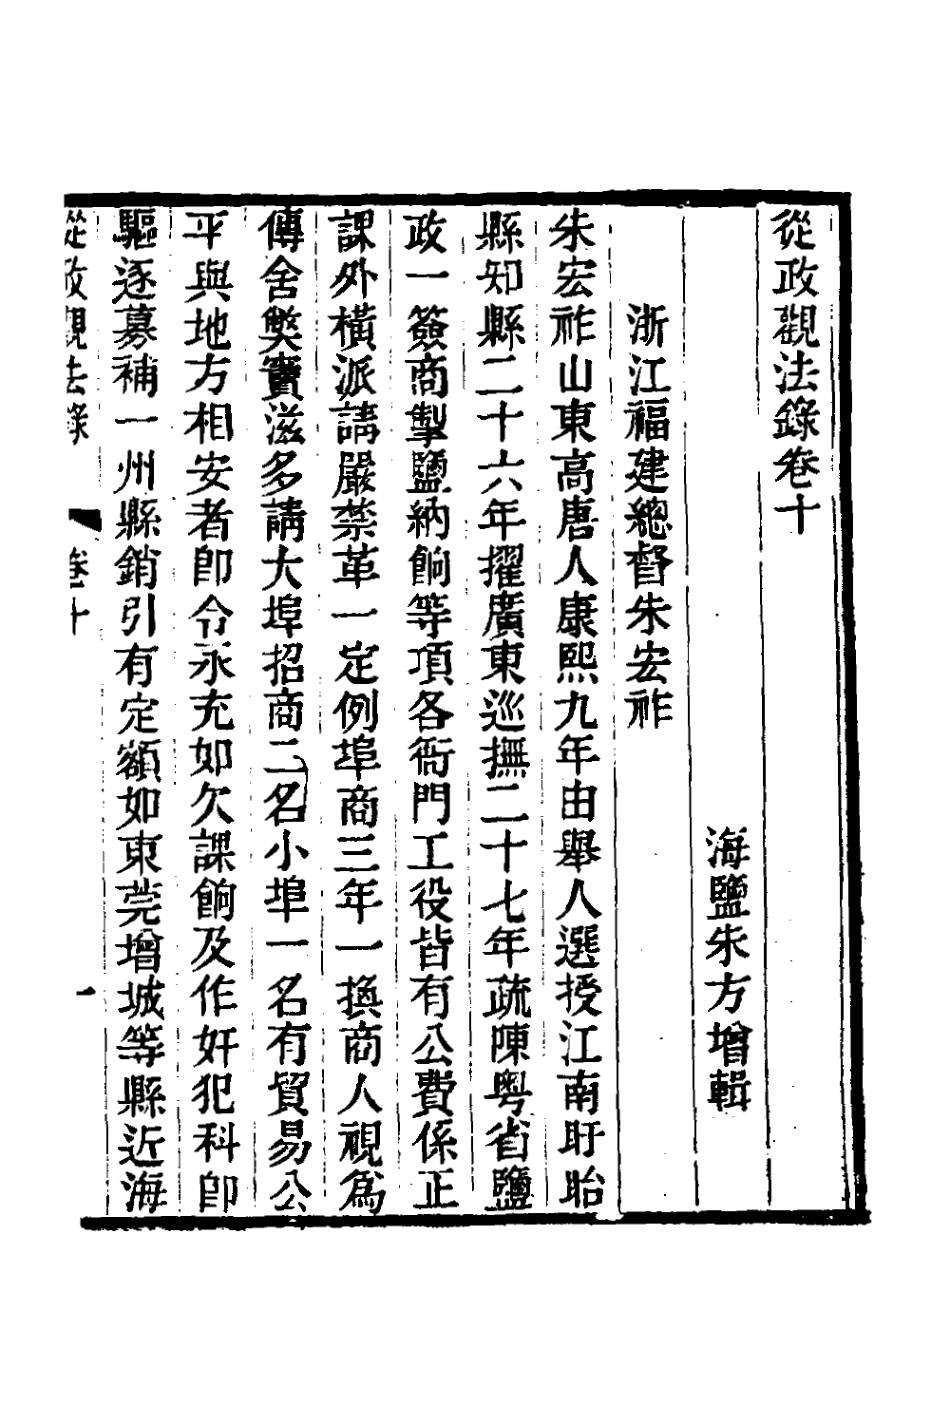 從政觀法錄卷十
海鹽朱方增輯
浙江福建總督朱宏祚
朱宏祚山東高唐人康熙九年由舉人選授江南盱眙
縣知縣二十六年擢廣東巡撫二十七年疏陳粤省鹽
政一簽商掣鹽納餉等項各衙門工役皆有公費係正
課外橫派請嚴禁革一定例埠商三年一換商人視爲
傳舍獘竇滋多請大埠招商二名小埠一名有貿易公
平與地方相安者卽令永充如欠課餉及作奸犯科卽
驅逐募補一州縣銷引有定額如東莞增城等縣近海
從政觀法錄 卷十 一